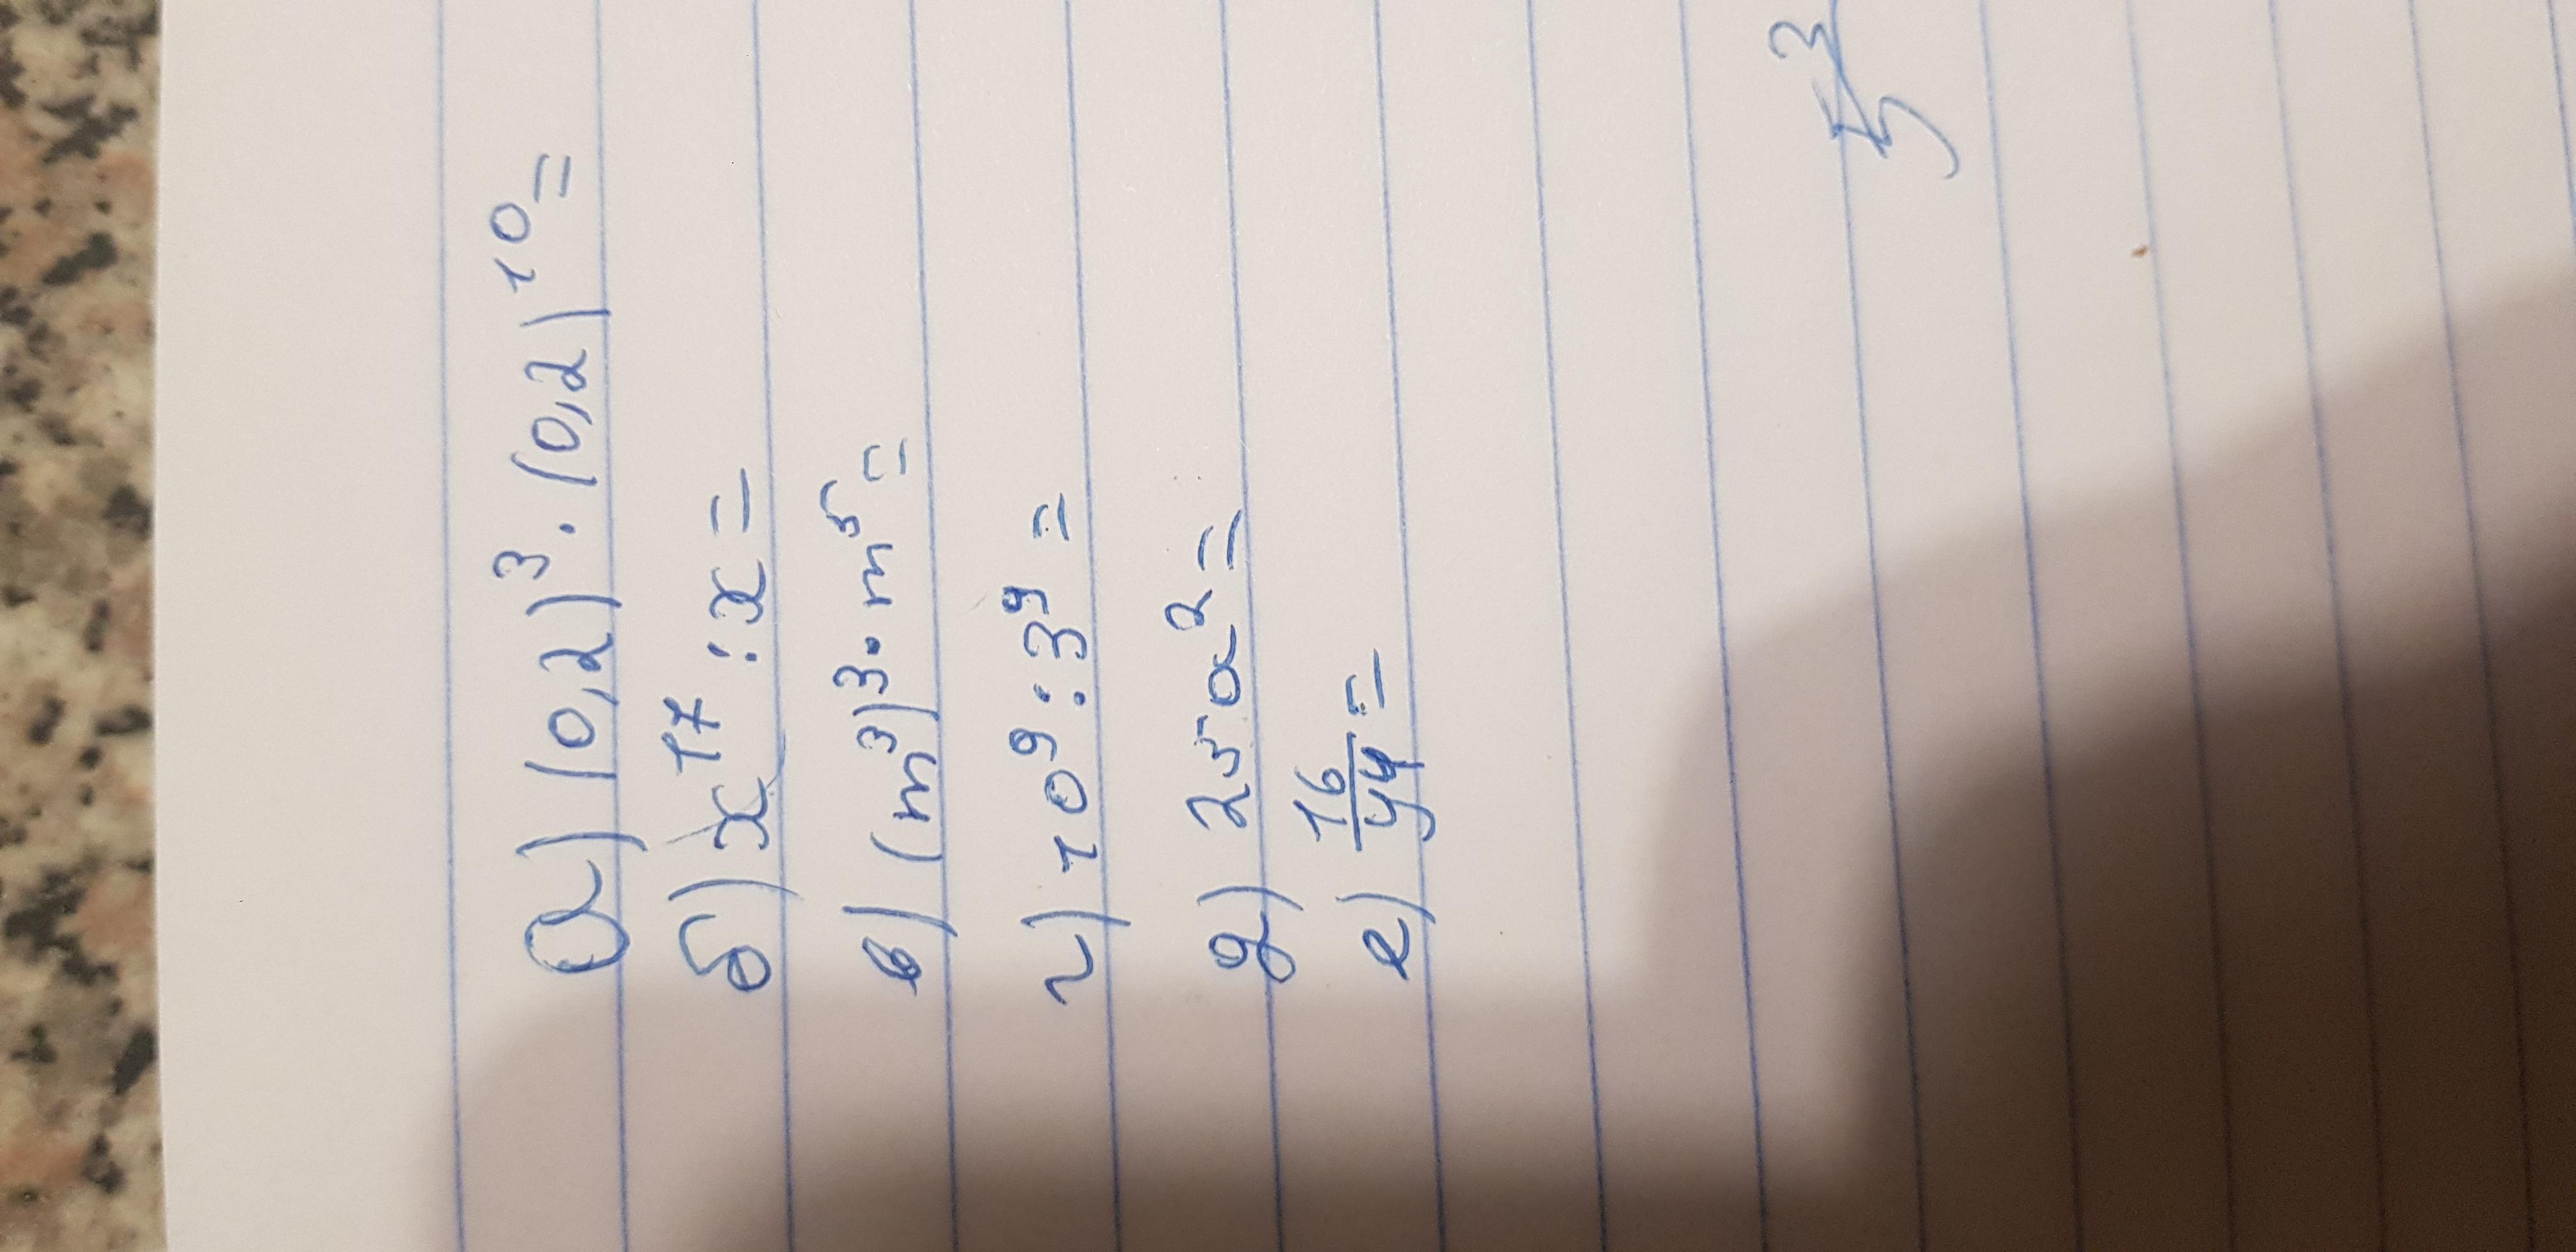 а) (0,2)³ · (0,2)¹⁰ =
б) x¹⁷ : x =
в) (m³)³ · m⁵ =
г) 10⁹ : 3⁹ =
д) 25a² =
е) 16/y⁴ =